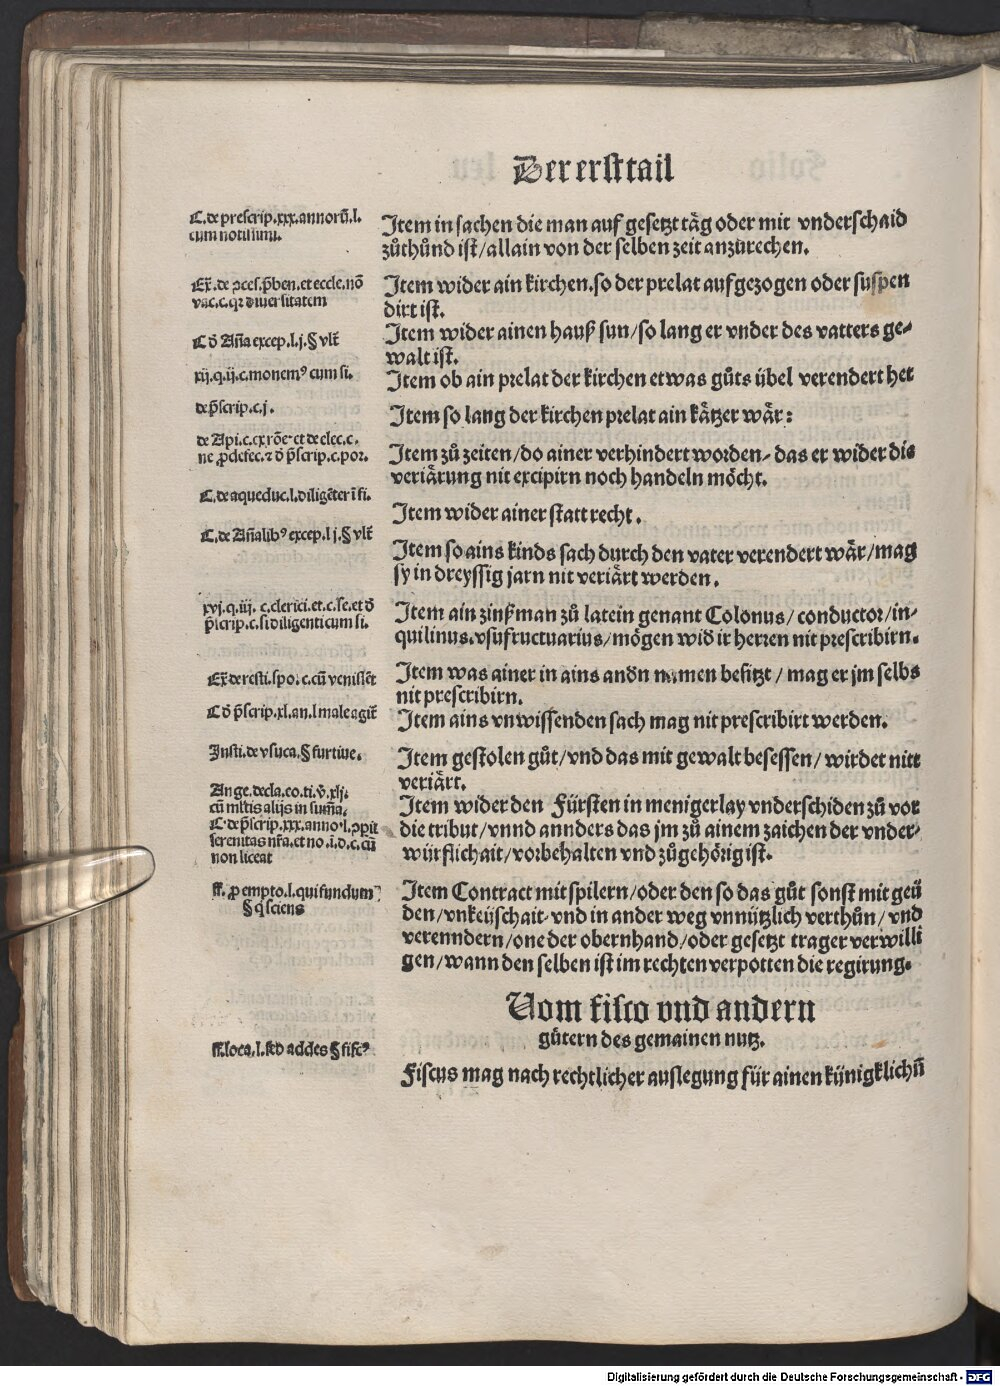 Der erst tail
C. de prescrip. xxx. annorū. l.
cum notissimi.
Item in sachen die man auf gesetzt täg oder mit vnderschaid
zůthůnd ist/allain von der selben zeit anzurechen.
Ex̄. de ꝓces. p̄ben. et eccle. nō
vac. c. qꝛ diuersitatem
Item wider ain kirchen. so der prelat aufgezogen oder suspen
dirt ist.
C ō Aña excep. l. j. § vlt̄
Item wider ainen hauß sun/so lang er vnder des vatters ge⸗
walt ist.
xij. q. ij. c. monemꝰ cum si.
Item ob ain prelat der kirchen etwas gůts übel verendert het
de p̄scrip. c. j.
Item so lang der kirchen prelat ain kätzer wär:
de Api. c. ex rōe. et de elec. c.
ne ꝓ defec. ⁊ ō p̄scrip. c. por.
Item zů zeiten/do ainer verhindert worden/ das er wider die
veriärung nit excipirn noch handeln möcht.
C. de aqueduc. l. diligēter ī fi.
Item wider ainer statt recht.
C. de Añalibꝰ excep. l j. § vlt̄
Item so ains kinds sach durch den vater verendert wär/mag
sy in dreyssig jarn nit veriärt werden.
xvj. q. iij. c. clerici. et. c. se. et ō
p̄scrip. c. si diligenti cum si.
Item ain zinßman zů latein genant Colonus/ conductor/in⸗
quilinus. vsufructuarius/mögen wid ir herren nit prescribirn.
Ex̄ de resti. spo. c. cū venissēt
Item was ainer in ains andn namen besitzt / mag er jm selbs
nit prescribirn.
C ō p̄scrip. xl. an. l male agit̄
Item ains vnwissenden sach mag nit prescribirt werden.
Insti. de vsuca. § furtiue.
Item gestolen gůt/vnd das mit gewalt besessen/ wirdet nitt
veriärt.
Ange. decla. eo. ti. v̄. xlj.
cū ml̄tis alijs in sum̄a.
C. de p̄scrip. xxx. anno. l. ꝯpit
serenitas nr̄a. et no. ī. d. c. cū
non liceat
Item wider den Fürsten in menigerlay vnderschiden zů vor
die tribut/vnnd annders das jm zů ainem zaichen der vnder⸗
würflichait/vorbehalten vnd zůgehörig ist.
ff. ꝓ empto. l. qui fundum
§ q̄ sciens
Item Contract mit spilern/oder den so das gůt sonst mit geü
den/vnkeüschait/ vnd in ander weg vnnützlich verthůn/ vnd
verenndern/one der obernhand/oder gesetzt trager verwilli
gen/wann den selben ist im rechten verpotten die regirung.
Vom fisco vnd andern
gütern des gemainen nutz.
ff. loca. l. sed addes § fiscꝰ
Fiscus mag nach rechtlicher auslegung für ainen künigklichñ
Digitalisierung gefördert durch die Deutsche Forschungsgemeinschaft - DFG